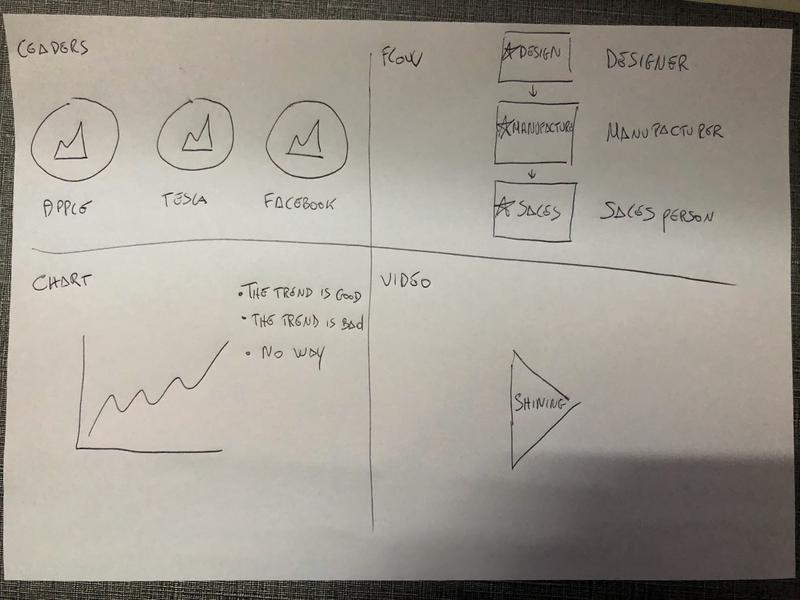 LEADERS
APPLE
TESLA
FACEBOOK
FLOW
DESIGN
DESIGNER
MANUFACTURE
MANUFACTURER
SALES
SALES PERSON
CHART
• THE TREND IS GOOD
• THE TREND IS BAD
• NO WAY
VIDEO
SHINING